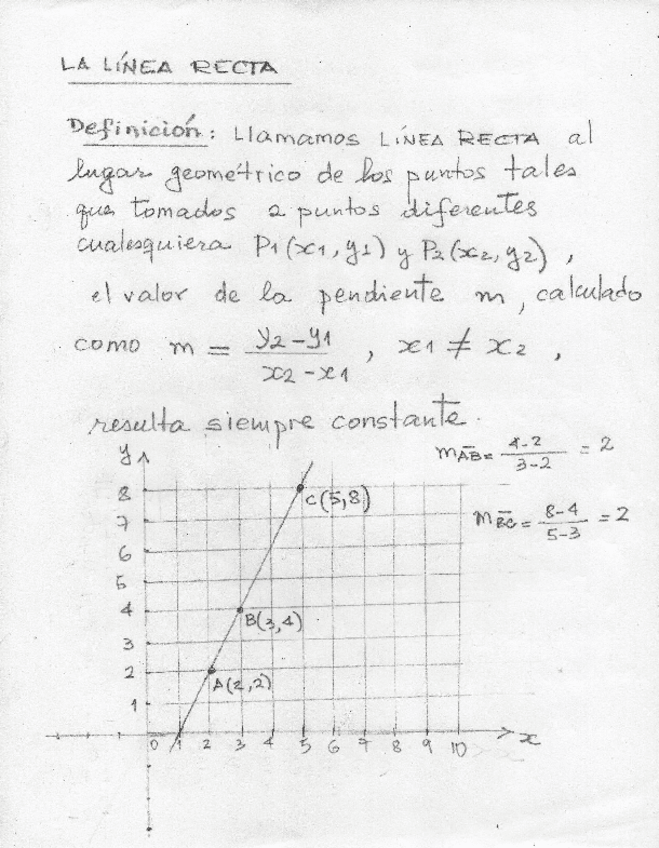 LA LÍNEA RECTA
Definición: Llamamos LÍNEA RECTA al
lugar geométrico de los puntos tales
que tomados 2 puntos diferentes
cualesquiera P1(x1, y1) y P2(x2, y2),
el valor de la pendiente m, calculado
como m = y2-y1 / x2-x1 , x1 ≠ x2 ,
resulta siempre constante.
mAB = 4-2 / 3-2 = 2
mBC = 8-4 / 5-3 = 2
y
8
7
6
5
4
3
2
1
C(5,8)
B(3,4)
A(2,2)
0 1 2 3 4 5 6 7 8 9 10 x